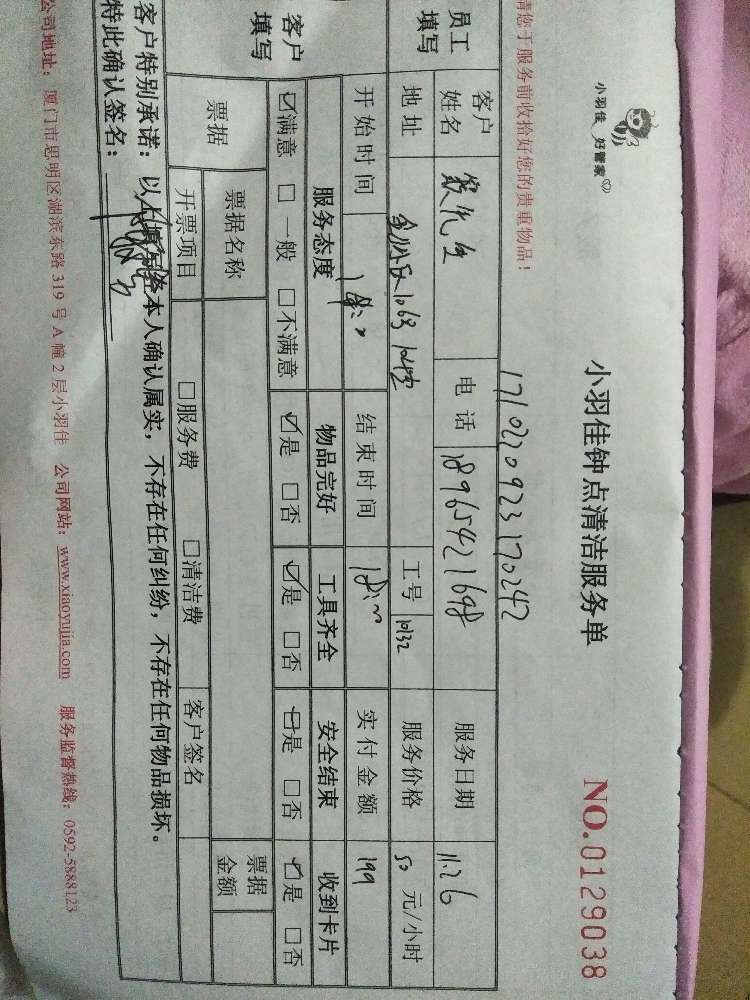 小羽佳 好管家
小羽佳钟点清洁服务单
NO.0129038
请您于服务前收拾好您的贵重物品!
1710220923170242
员工填写
客户姓名 先生 电话 18965421698 服务日期 11.26
地址 1063 工号 服务价格 50 元/小时
开始时间 结束时间 18:00 实付金额 199
客户填写
服务态度 物品完好 工具齐全 安全结束 收到卡片
☑满意 □一般 □不满意 ☑是 □否 ☑是 □否 ☑是 □否 ☑是 □否
票据 票据名称 票据金额
开票项目 □服务费 □清洁费 客户签名
客户特别承诺:以上填写经本人确认属实,不存在任何纠纷,不存在任何物品损坏。
特此确认签名:
公司地址:厦门市思明区湖滨东路 319 号 A 幢 2 层小羽佳 公司网站:www.xiaoyujia.com 服务监督热线:0592-5888123